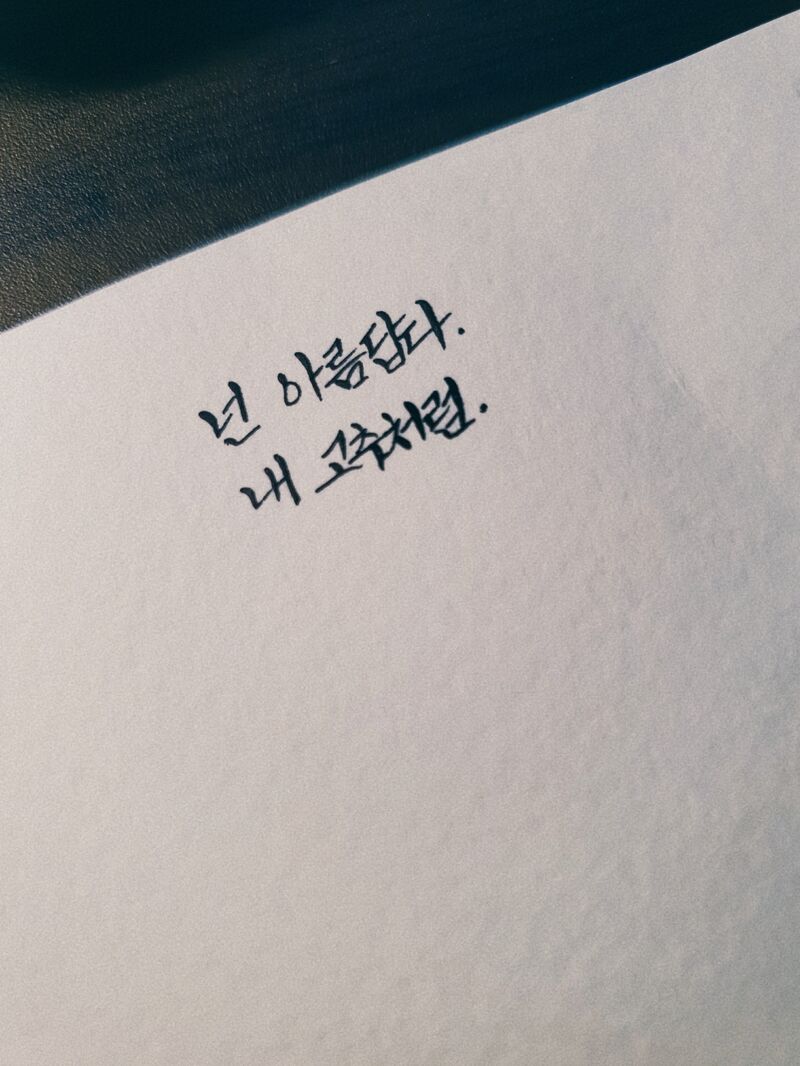 넌 아름답다.
내 고추처럼.